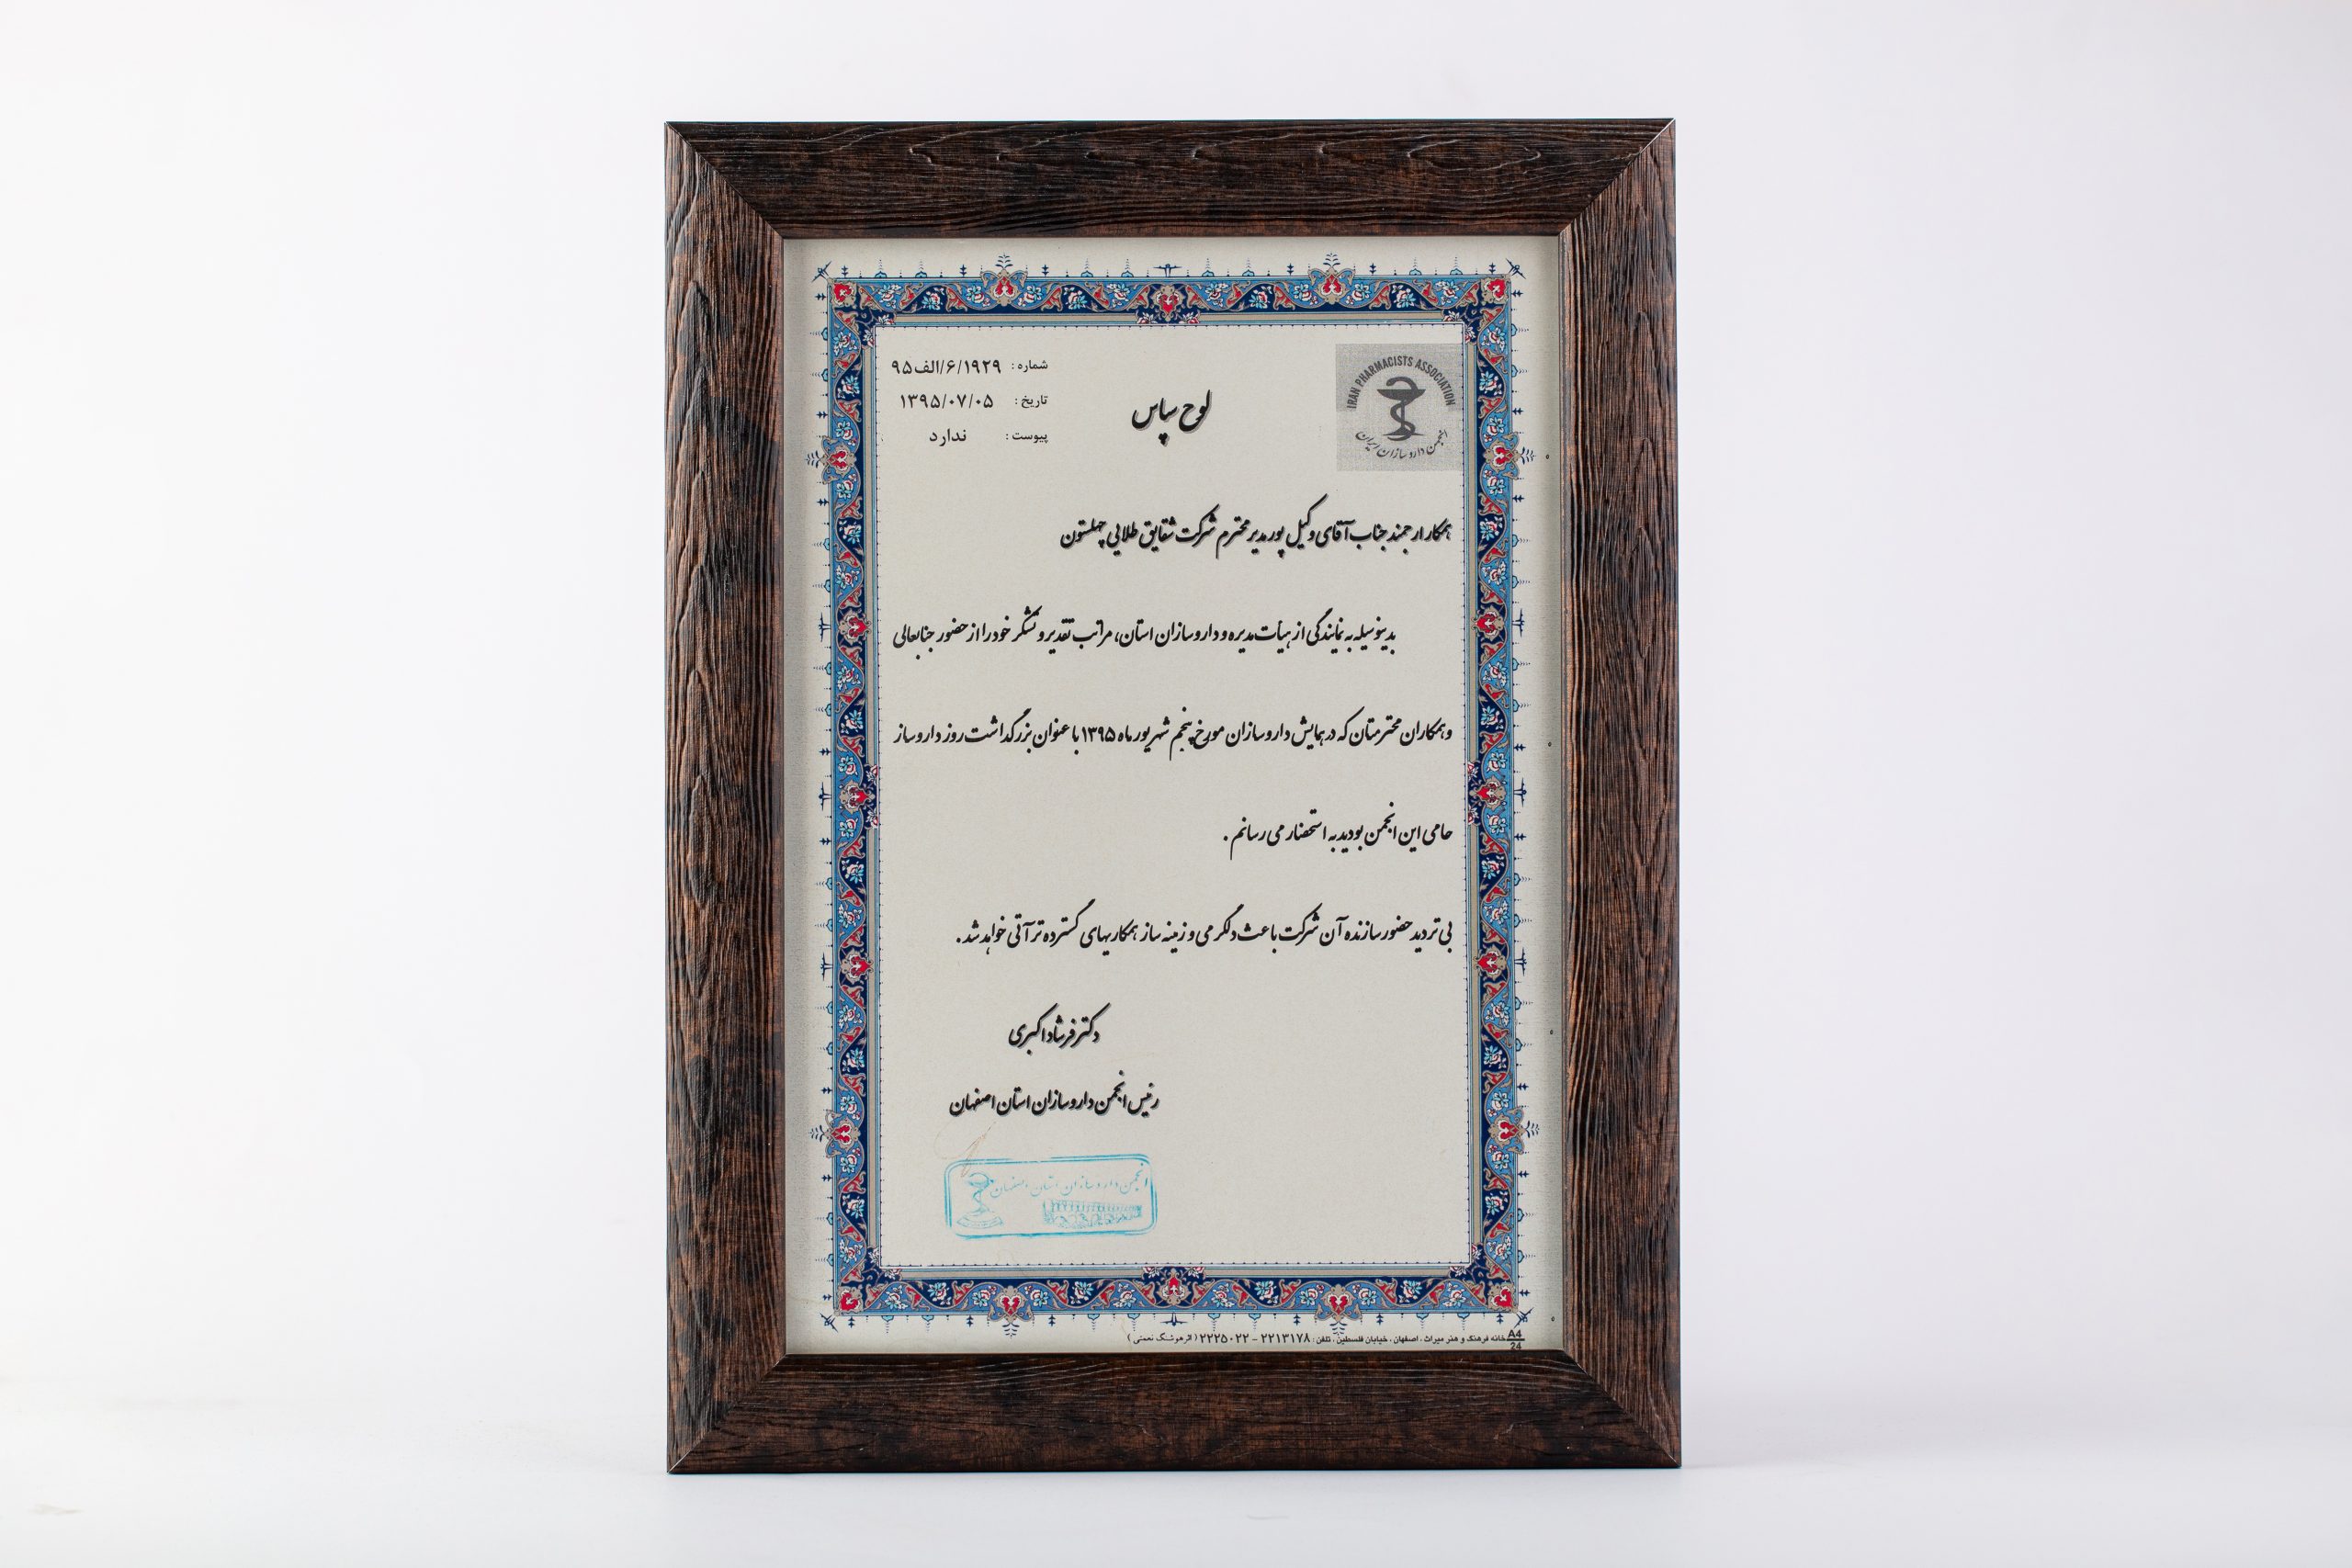 IRAN PHARMACISTS ASSOCIATION
انجمن داروسازان ایران
لوح سپاس
شماره : ۱۹۲۹/۶/الف۹۵
تاریخ : ۱۳۹۵/۰۷/۰۵
پیوست : ندارد
همکار ارجمند جناب آقای وکیل پور مدیر محترم شرکت شقایق طلایی چهلستون
بدینوسیله به نمایندگی از هیأت مدیره و داروسازان استان، مراتب تقدیر و تشکر خود را از حضور جنابعالی
و همکاران محترمتان که در همایش داروسازان مورخ پنجم شهریور ماه ۱۳۹۵ با عنوان بزرگداشت روز داروساز
حامی این انجمن بودید به استحضار می رسانم .
بی تردید حضور سازنده آن شرکت باعث دلگرمی و زمینه ساز همکاریهای گسترده تر آتی خواهد شد .
دکتر فرشاد اکبری
رئیس انجمن داروسازان استان اصفهان
انجمن داروسازان استان اصفهان
A4
24
خانه فرهنگ و هنر میراث ، اصفهان ، خیابان فلسطین ، تلفن : ۲۲۱۳۱۷۸ - ۲۲۲۵۰۲۲ ( اثر هوشنگ نعمتی )